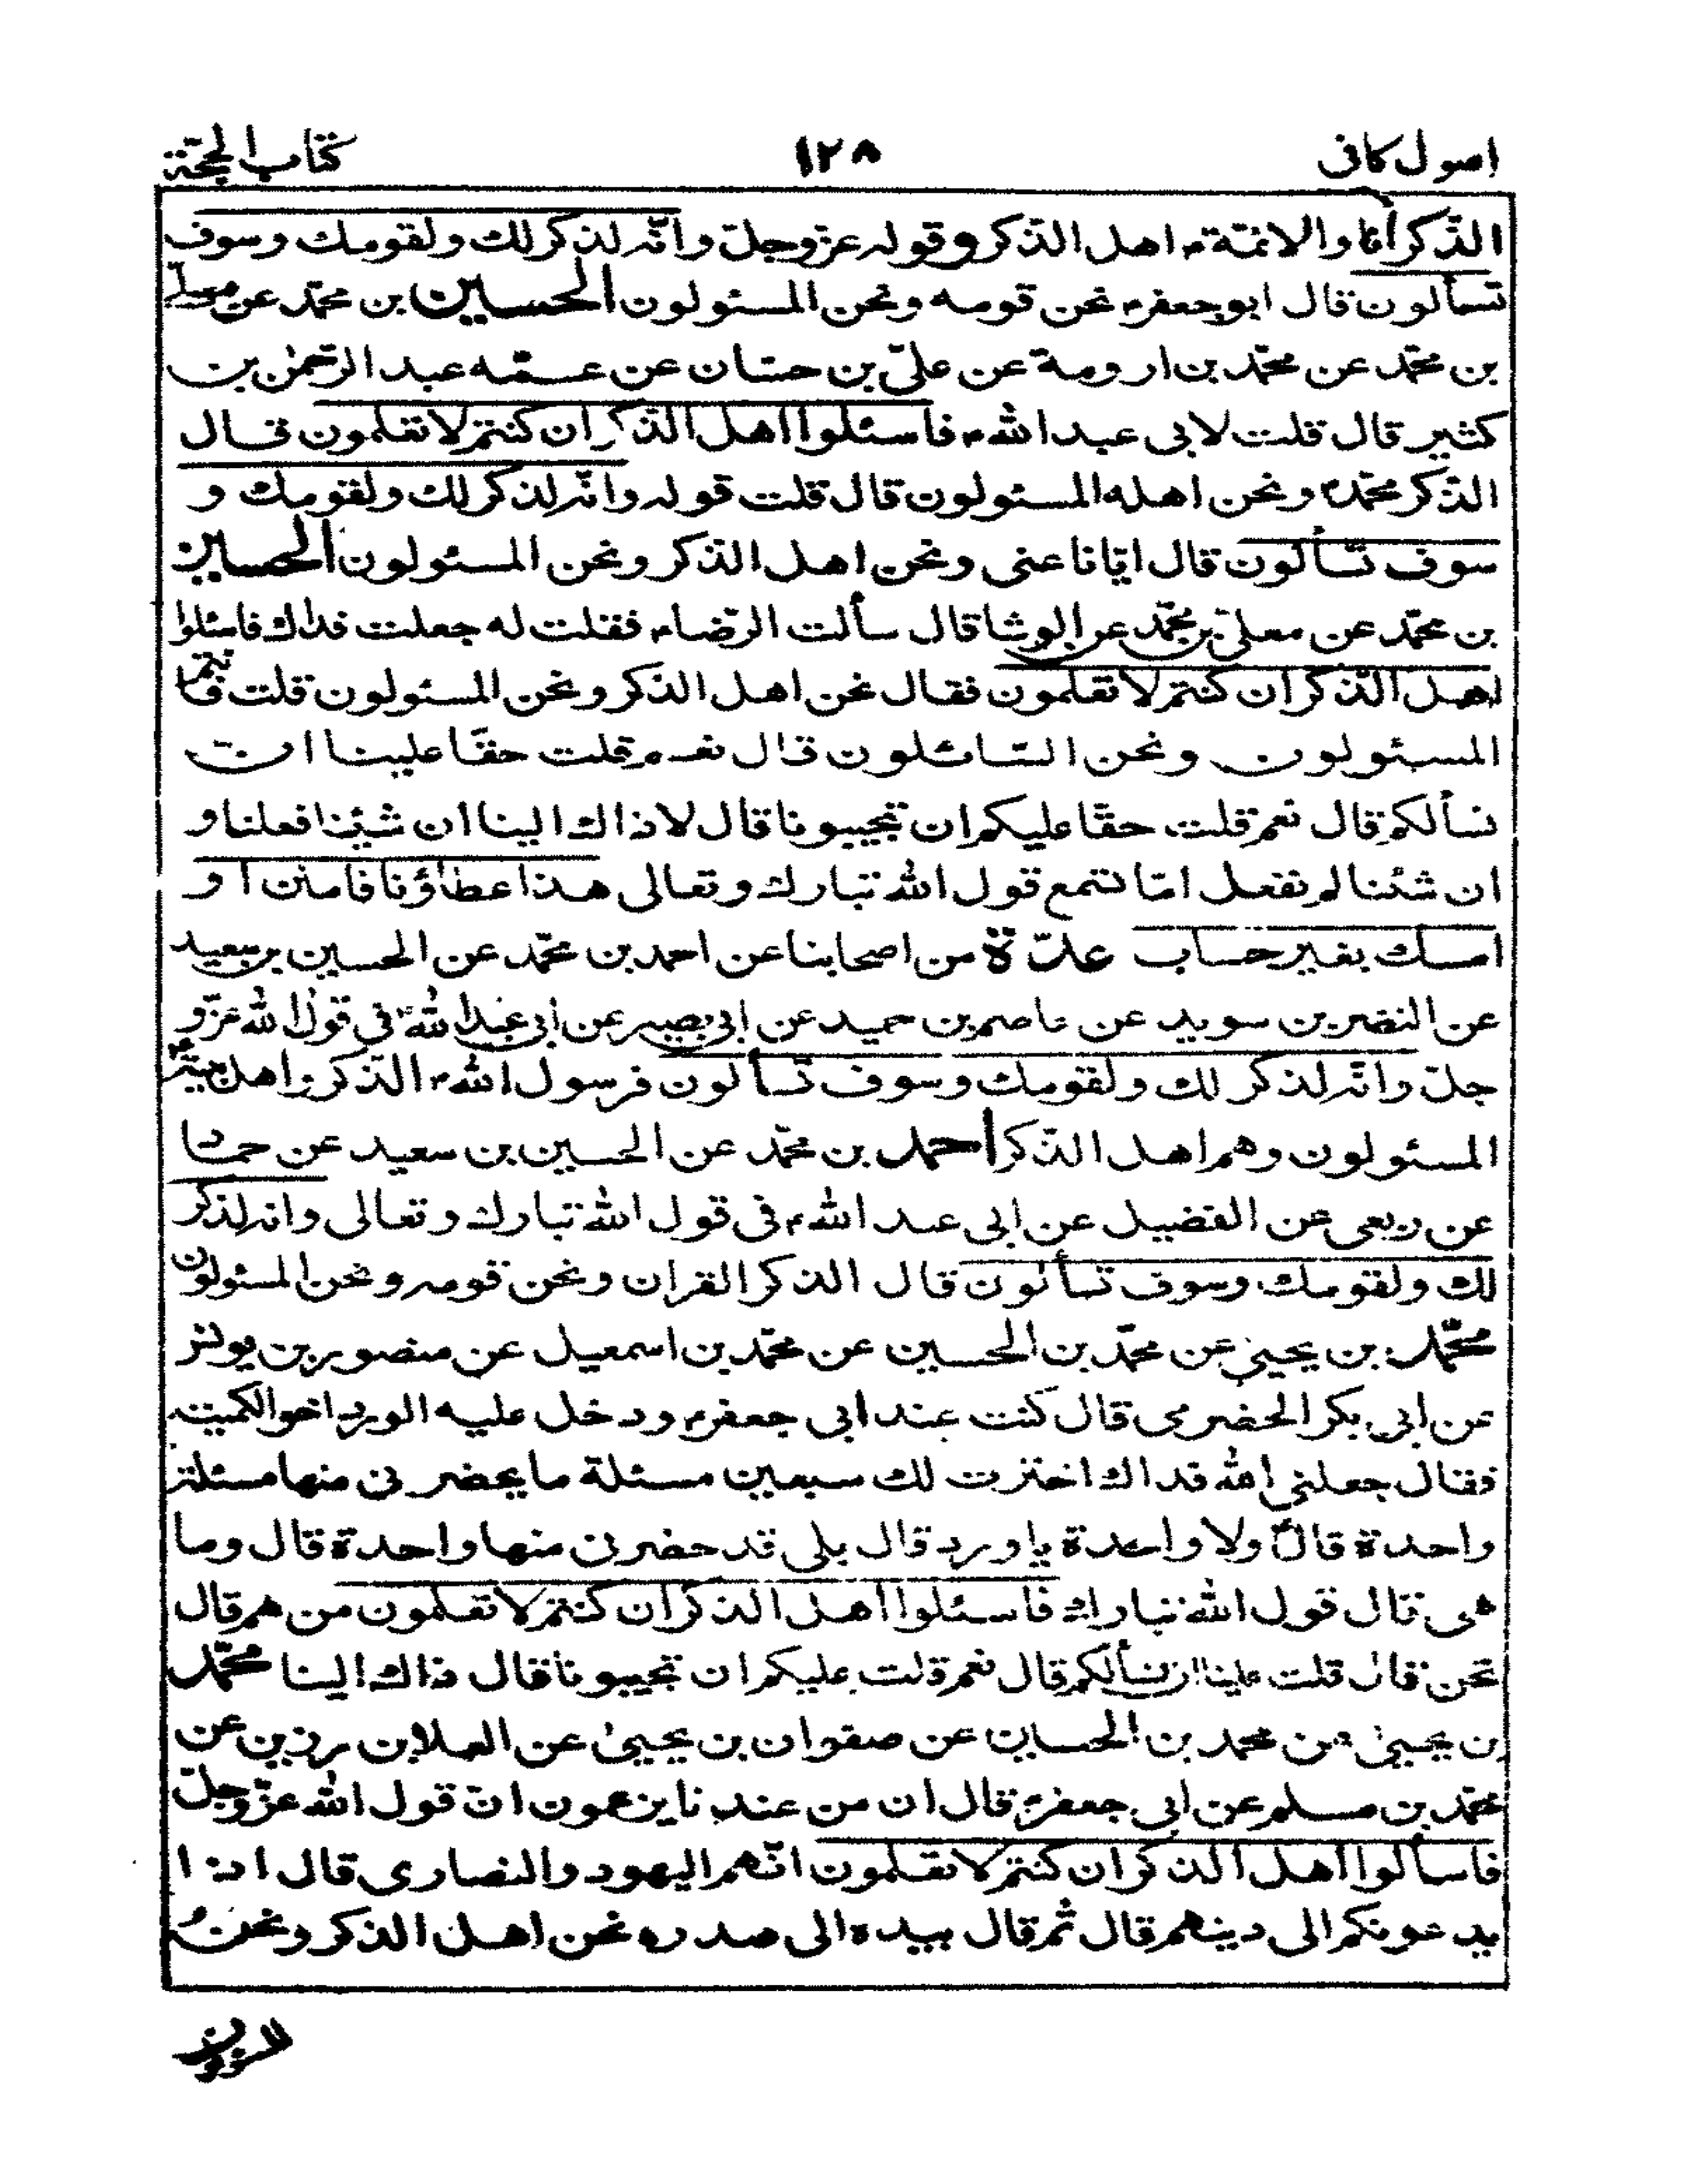 اصول كافى ١٢٨ كتاب الحجّة
الذّكر أنا والائمّة ع اهل الذّكر وقوله عزّوجلّ وانّه لذكر لك ولقومك وسوف
تسألون قال ابوجعفر ع نحن قومه ونحن المسئولون الحسين بن محمّد عن معلّى
بن محمّد عن محمّد بن ارومة عن علىّ بن حسّان عن عمّه عبد الرّحمٰن بن
كثير قال قلت لابى عبد الله ع فاسئلوا اهل الذّكر ان كنتم لا تعلمون قال
الذّكر محمّد ص ونحن اهله المسئولون قال قلت قوله وانّه لذكر لك ولقومك و
سوف تسألون قال ايّانا عنى ونحن اهل الذكر ونحن المسئولون الحسين
بن محمّد عن معلّى بن محمّد عن الوشا قال سألت الرّضا ع فقلت له جعلت فداك فاسئلوا
اهل الذّكر ان كنتم لا تعلمون فقال نحن اهل الذكر ونحن المسئولون قلت فانتم
المسئولون ونحن السّائلون قال نعم قلت حقّا علينا ان
نسألكم قال نعم قلت حقّا عليكم ان تجيبونا قال لا ذاك الينا ان شئنا فعلنا و
ان شئنا لم نفعل امّا تسمع قول الله تبارك وتعالى هذا عطاؤنا فامنن او
امسك بغير حساب عدّة من اصحابنا عن احمد بن محمّد عن الحسين بن سعيد
عن النضر بن سويد عن عاصم بن حميد عن ابى بصير عن ابى عبد الله ع فى قول الله عزّو
جلّ وانّه لذكر لك ولقومك وسوف تسألون فرسول الله ص الذّكر واهل بيته ع
المسئولون وهم اهل الذّكر احمد بن محمّد عن الحسين بن سعيد عن حماد
عن ربعى عن الفضيل عن ابى عبد الله ع فى قول الله تبارك وتعالى وانه لذكر
لك ولقومك وسوف تسألون قال الذكر القران ونحن قومه ونحن المسئولون
محمّد بن يحيىٰ عن محمّد بن الحسين عن محمّد بن اسمعيل عن منصور بن يونس
عن ابى بكر الحضرمى قال كنت عند ابى جعفر ع ودخل عليه الورد اخو الكميت
فقال جعلنى الله فداك اخترت لك سبعين مسئلة ما يحضرنى منها مسئلة
واحدة قال ولا واحدة يا ورد قال بلى قد حضرنى منها واحدة قال وما
هى قال قول الله تبارك فاسئلوا اهل الذكر ان كنتم لا تعلمون من هم قال
نحن قال قلت علينا ان نسألكم قال نعم قلت عليكم ان تجيبونا قال ذاك الينا محمّد
بن يحيىٰ عن محمد بن الحسين عن صفوان بن يحيىٰ عن العلا بن رزين عن
محمّد بن مسلم عن ابى جعفر ع قال ان من عندنا يزعمون انّ قول الله عزّوجلّ
فاسألوا اهل الذكر ان كنتم لا تعلمون انّهم اليهود والنصارى قال اذا
يدعونكم الى دينهم قال ثم قال بيده الى صدره نحن اهل الذكر ونحن
المسؤولون